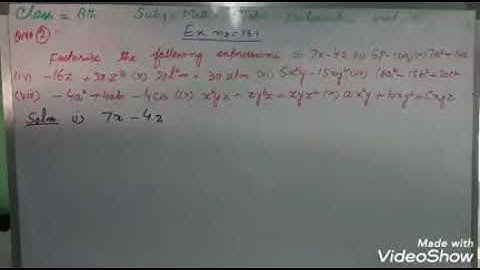 Class = 8th Sub:- Math
Ex no = 14.1
Q no (2)
Factorise the following expressions (i) 7x - 42 (ii) 6p - 12q (iii) 7a² +
(iv) -16z + 20z³ (v) 20l²m + 30alm (vi) 5x²y - 15xy² (vii) 10a² - 15b² + 20c²
(viii) -4a² + 4ab - 4ca (ix) x²yz + xy²z + xyz² (x) ax²y + bxy² + cxyz
Soln (i) 7x - 42
Made with
VideoShow